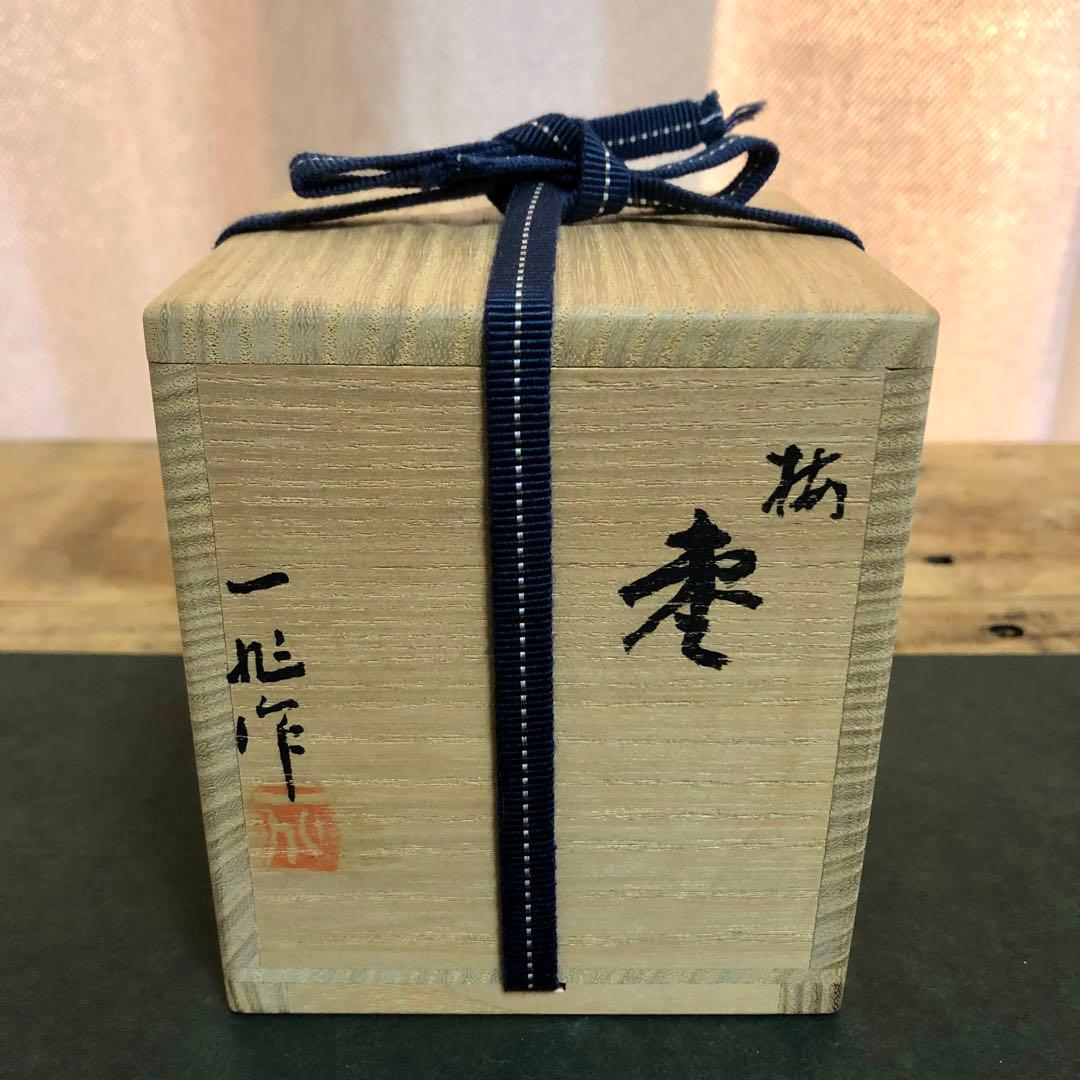 梅
棗
一兆作